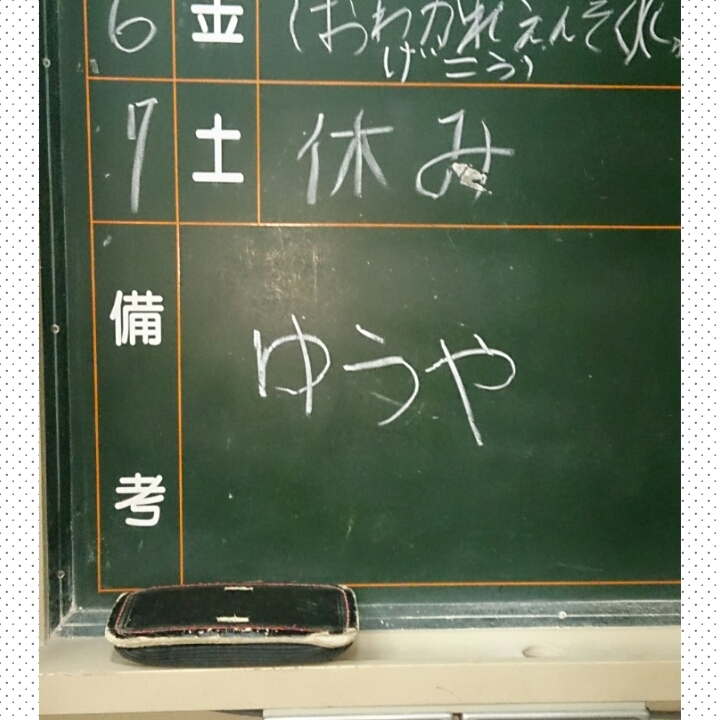 6 金 おわかれえんそく
げこう
7 土 休み
備考 ゆうや